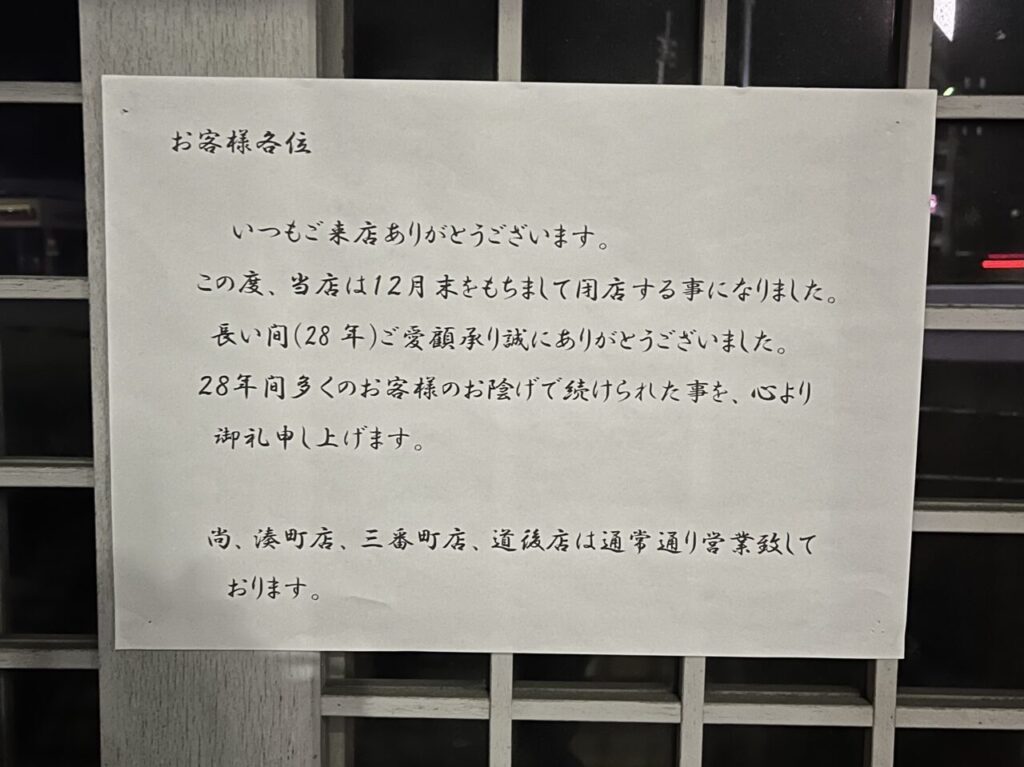 お客様各位
いつもご来店ありがとうございます。
この度、当店は12月末をもちまして閉店する事になりました。
長い間(28年)ご愛顧承り誠にありがとうございました。
28年間多くのお客様のお陰げで続けられた事を、心より
御礼申し上げます。
尚、湊町店、三番町店、道後店は通常通り営業致して
おります。